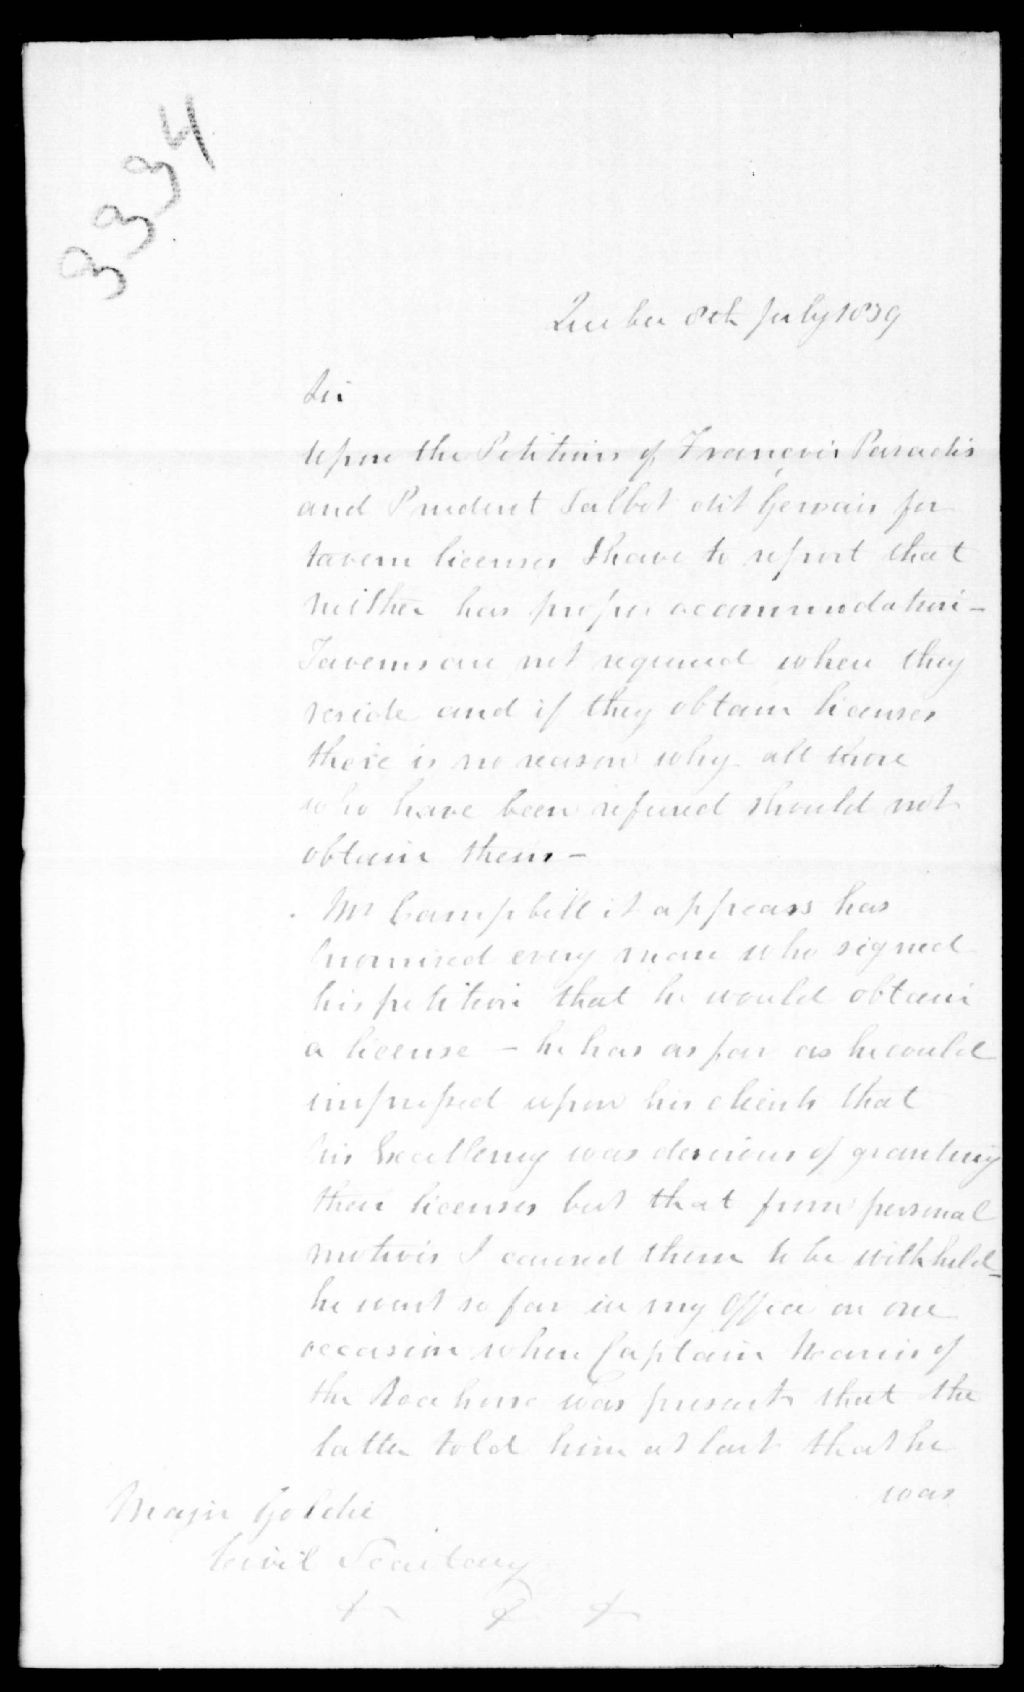 3334
Quebec 8th July 1839
Sir
Upon the Petitions of François Paradis
and Prudent Talbot dit Gervais for
tavern licenses I have to report that
neither has proper accommodation –
Taverns are not required where they
reside and if they obtain licenses
there is no reason why all those
who have been refused should not
obtain them –
Mr Campbell it appears has
promised every man who signed
his petition that he would obtain
a license – he has as far as he could
impressed upon his clients that
his Excellency was desirous of granting
their licenses but that from personal
motives I caused them to be withheld –
he went so far in my Office on one
occasion when Captain of
the was present that the
latter told him at last that he
was
Major Goldie
Civil Secretary